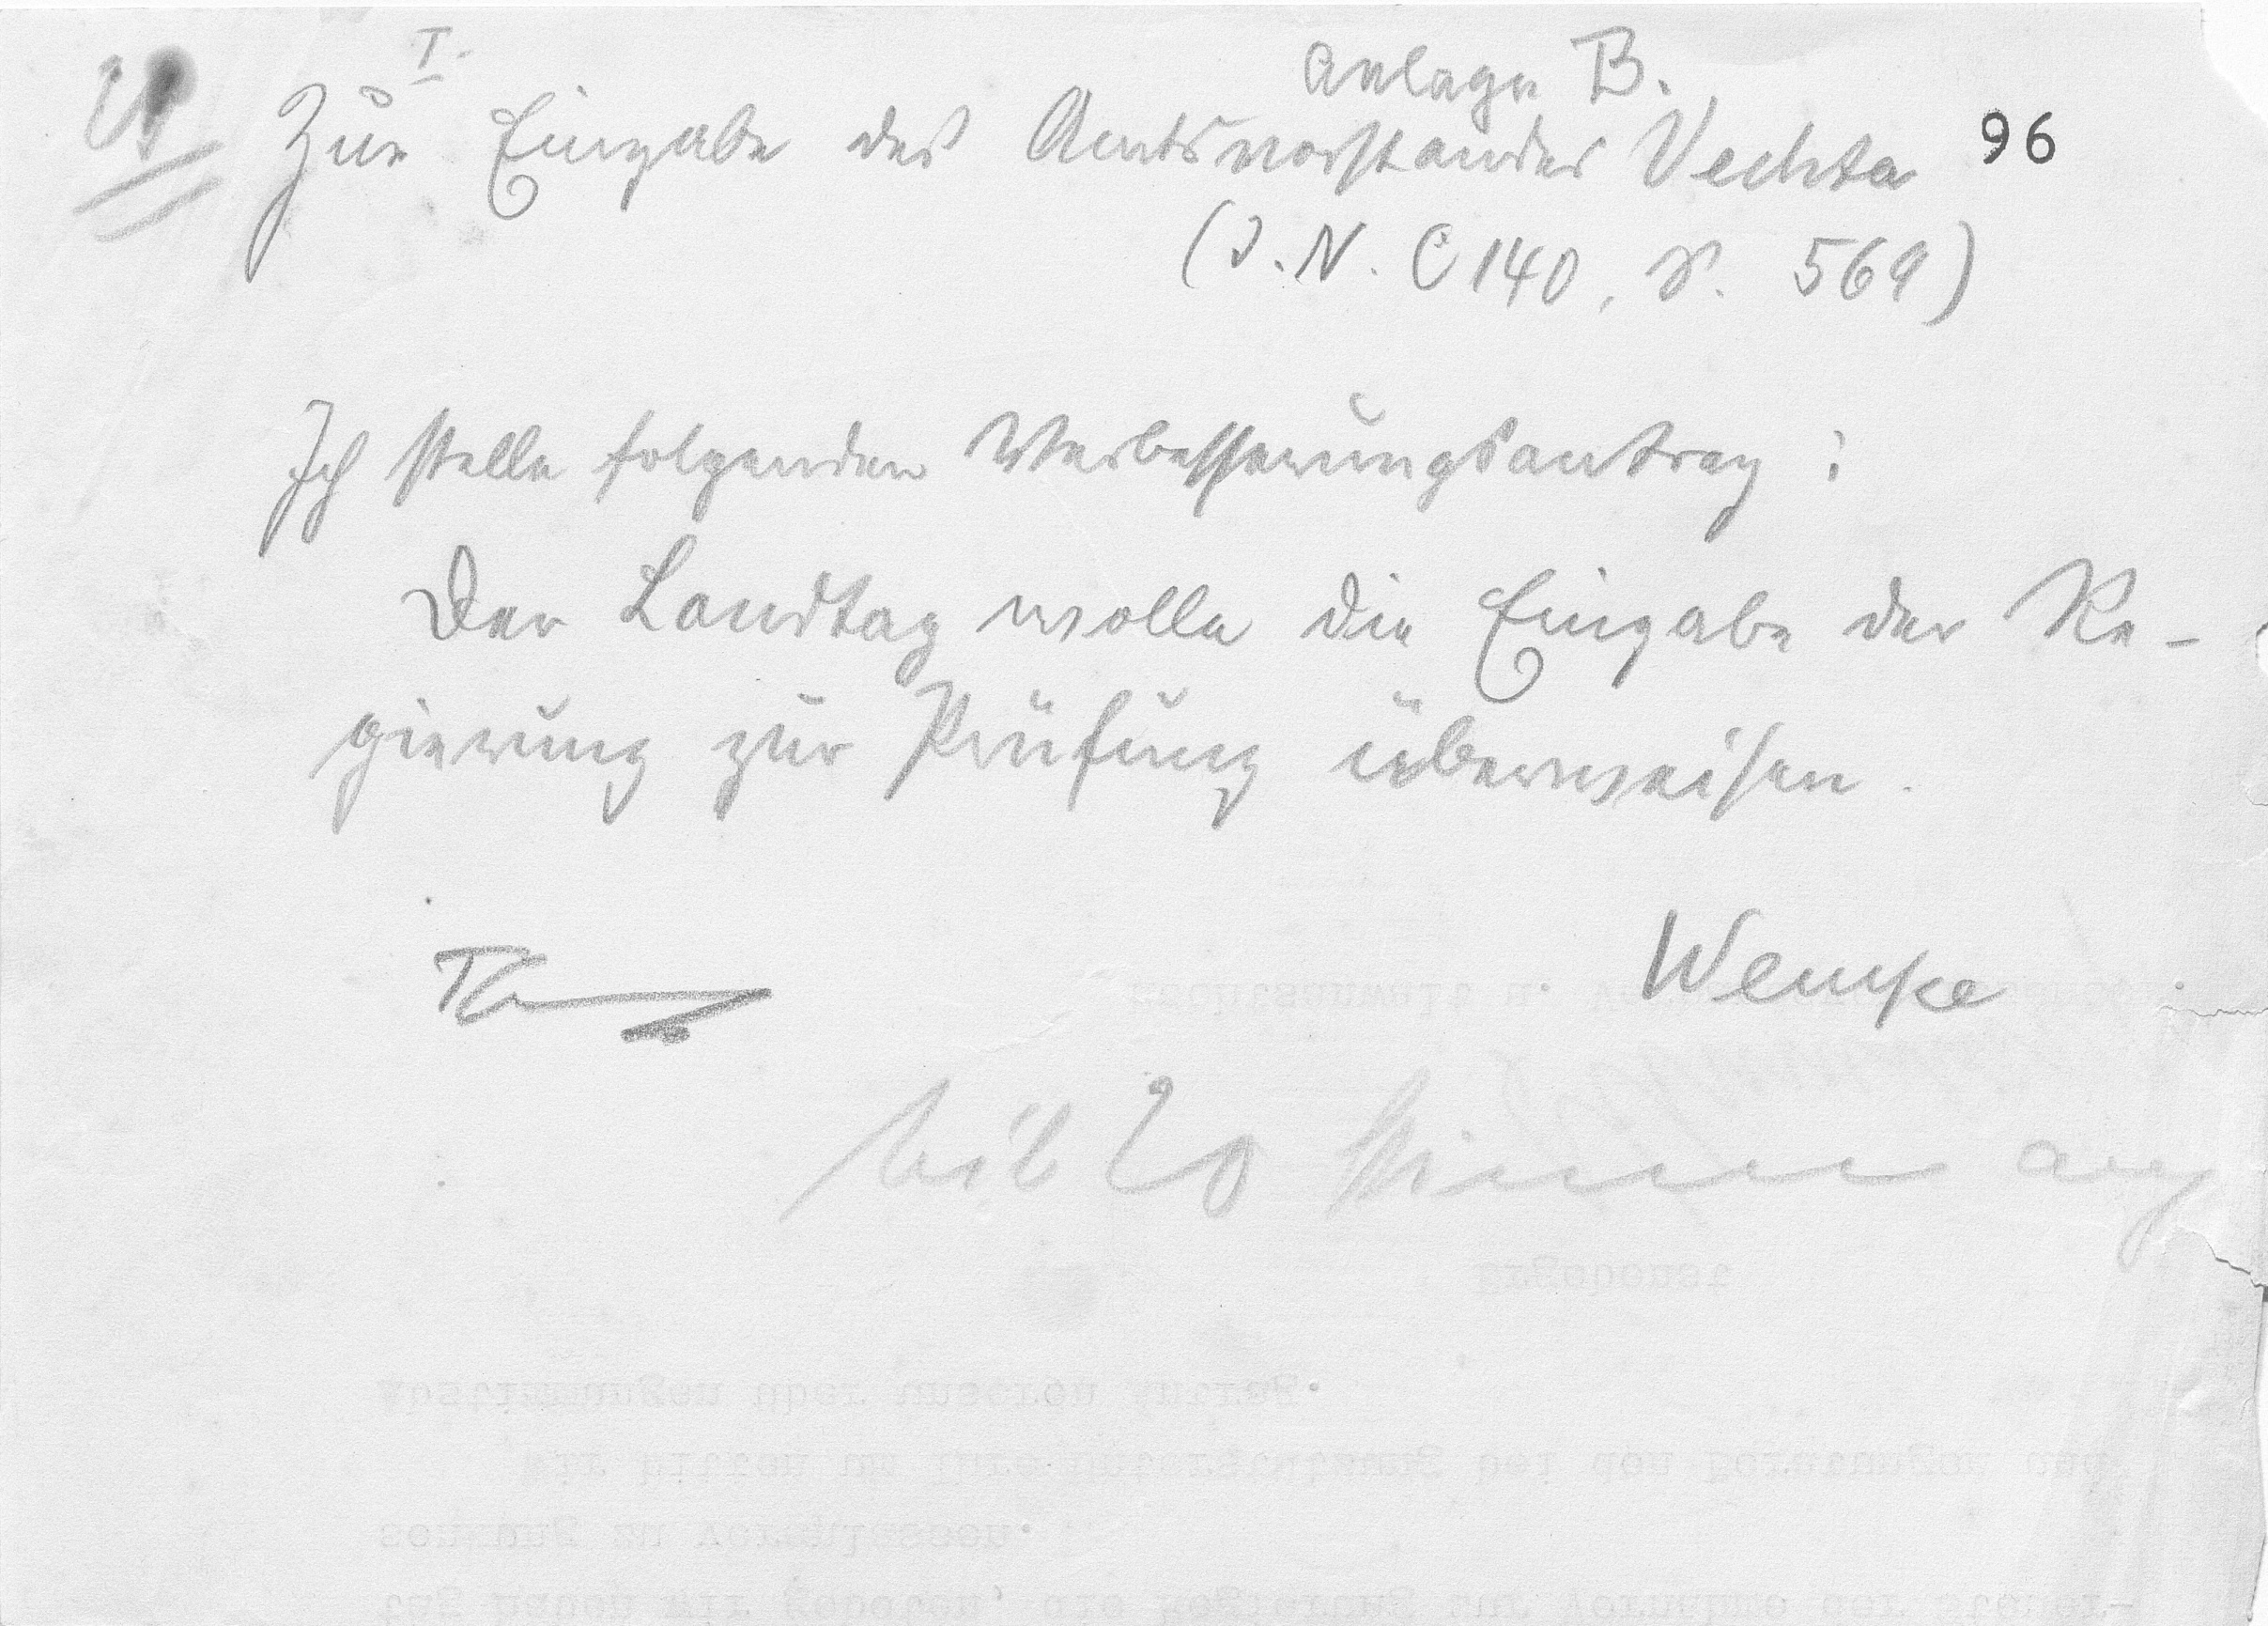 I.
Anlage B.
Zur Eingabe des Amtsvorstandes Vechta 96
(J. N. C 140, S. 569)
Ich stelle folgenden Verbesserungsantrag:
Der Landtag wolle die Eingabe der Re-
gierung zur Prüfung überweisen.
Wempe
mit 20 Stimmen ang